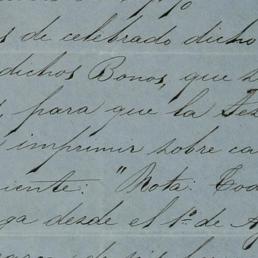 s de celebrado dicho
dichos Bonos, que s
, para que la Tes
imprimir sobre ca
iente: "Nota: Tod
ga desde el 1º de A